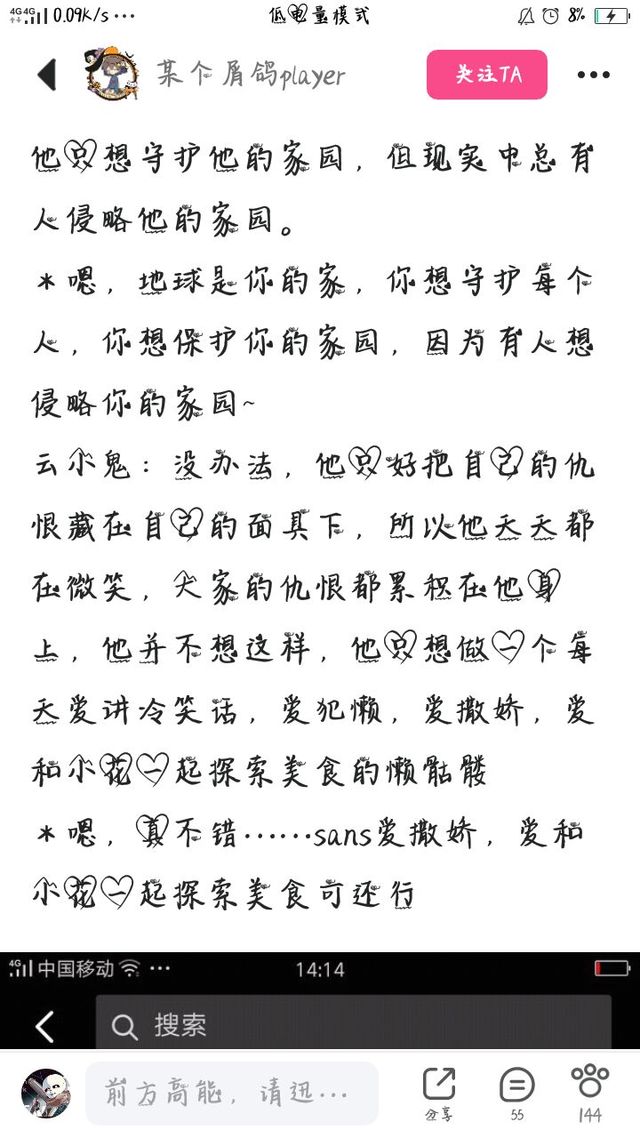 4G 4G 0.09K/s ··· 低电量模式 8%
某个屑鸽player 关注TA •••
他只想守护他的家园，但现实中总有
人侵略他的家园。
*嗯，地球是你的家，你想守护每个
人，你想保护你的家园，因为有人想
侵略你的家园~
云小鬼：没办法，他只好把自己的仇
恨藏在自己的面具下，所以他天天都
在微笑，大家的仇恨都累积在他身
上，他并不想这样，他只想做一个每
天爱讲冷笑话，爱犯懒，爱撒娇，爱
和小花一起探索美食的懒骷髅
*嗯，真不错……sans爱撒娇，爱和
小花一起探索美食可还行
4G 中国移动 ··· 14:14
搜索
前方高能，请迅… 分享 55 144